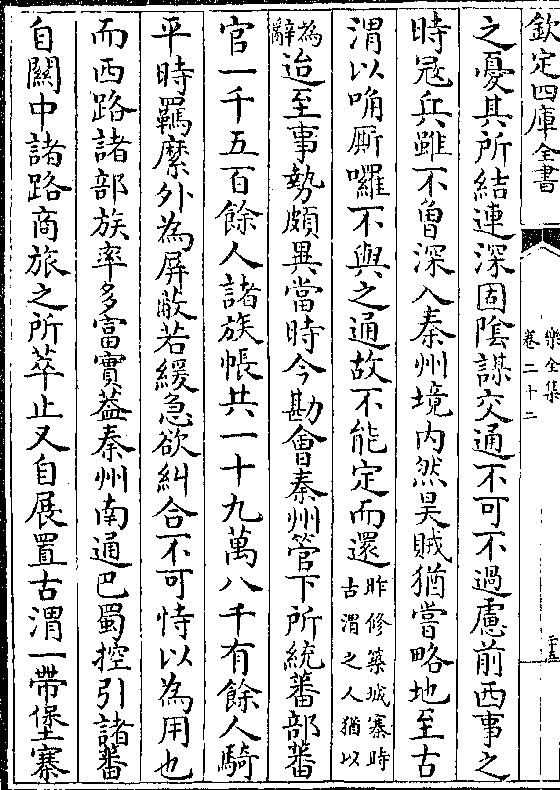 欽定四庫全書
樂全集
卷二十二
之憂其所結連深固陰謀交通不可不過慮前西事之
時冦兵雖不曾深入秦州境内然昊賊猶嘗略地至古
渭以唃厮囉不與之通故不能定而還昨修築城寨時古渭之人猶以
為辭迨至事勢頗異當時今勘會秦州管下所統蕃部蕃
官一千五百餘人諸族帳共一十九萬八千有餘人騎
平時羈縻外為屏蔽若緩急欲糾合不可恃以為用也
而西路諸部族率多富實葢秦州南通巴蜀控引諸蕃
自關中諸路商旅之所萃止又自展置古渭一帶堡寨